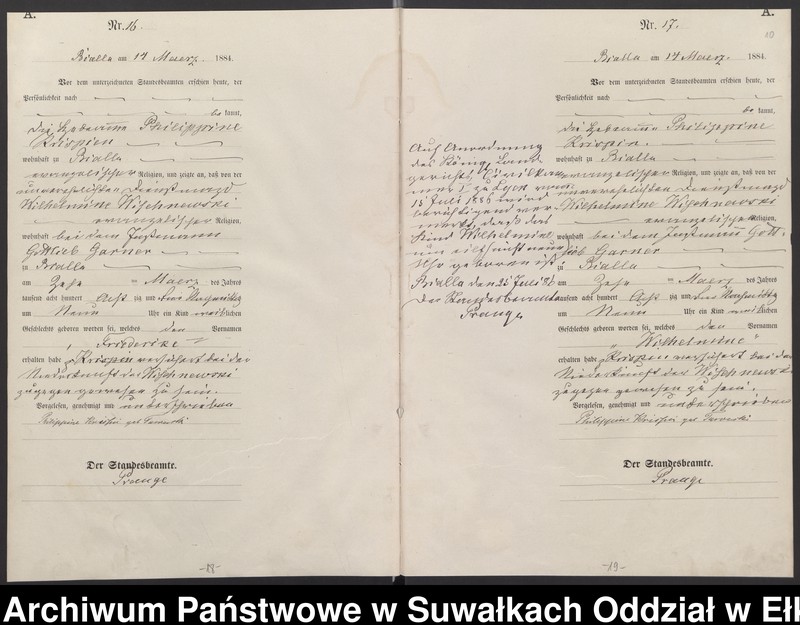 A.
Nr. 16.
Bialla am 14 Maerz. 1884.
Vor dem unterzeichneten Standesbeamten erschien heute, der
Persönlichkeit nach
be kannt,
die Hebamme Philippine
Krispien
wohnhaft zu Bialla
evangelischer Religion, und zeigte an, daß von der
unverehelichten Dienstmagd
Wilhelmine Wischnewski
evangelischer Religion,
wohnhaft bei dem Instmann
Gottlieb Garner
zu Bialla
am Maerz des Jahres
tausend acht hundert acht zig und vier Nachmittag
um Neun Uhr ein Kind weiblichen
Geschlechts geboren worden sei, welches den Vornamen
Friederike
erhalten habe Krispien versichert bei der
Niederkunft der Wischnewski
zugegen gewesen zu sein.
Vorgelesen, genehmigt und unterschrieben
Philippine geb
Der Standesbeamte.
Prange
-18-
A.
10
Nr. 17.
Bialla am 14 Maerz. 1884.
Vor dem unterzeichneten Standesbeamten erschien heute, der
Persönlichkeit nach
be kannt,
die Hebamme Philippine
Krispien
wohnhaft zu Bialla
evangelischer Religion, und zeigte an, daß von der
unverehelichten Dienstmagd
Wilhelmine Wischnewski
evangelische Religion,
wohnhaft bei dem Instmann Gott-
lieb Garner
zu Bialla
am Maerz des Jahres
tausend acht hundert acht zig und vier Nachmittag
um Neun Uhr ein Kind weiblichen
Geschlechts geboren worden sei, welches den Vornamen
„Wilhelmine“
erhalten habe Krispien versichert bei der
Niederkunft der Wischnewski
zugegen gewesen zu sein.
Vorgelesen, genehmigt und unterschrieben
Philippine geb
Der Standesbeamte.
Prange
-19-
Auf Anordnung
des König. Land
gerichts, Civilkam
mer I zu Lyck vom
15 Juli 1886 wird
berichtigend ver
merkt, daß das
Kind Wilhelmine
um nicht neun
Uhr geboren ist
Bialla den 25 Juli 86
Der Standesbeamte
Prange
Archiwum Państwowe w Suwałkach Oddział w Ełk